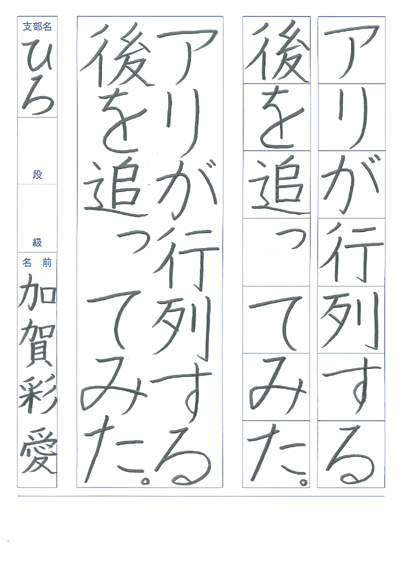 アリが行列する
後を追ってみた。
アリが行列する
後を追ってみた。
支部名
ひろ
段
級
名前
加賀彩愛